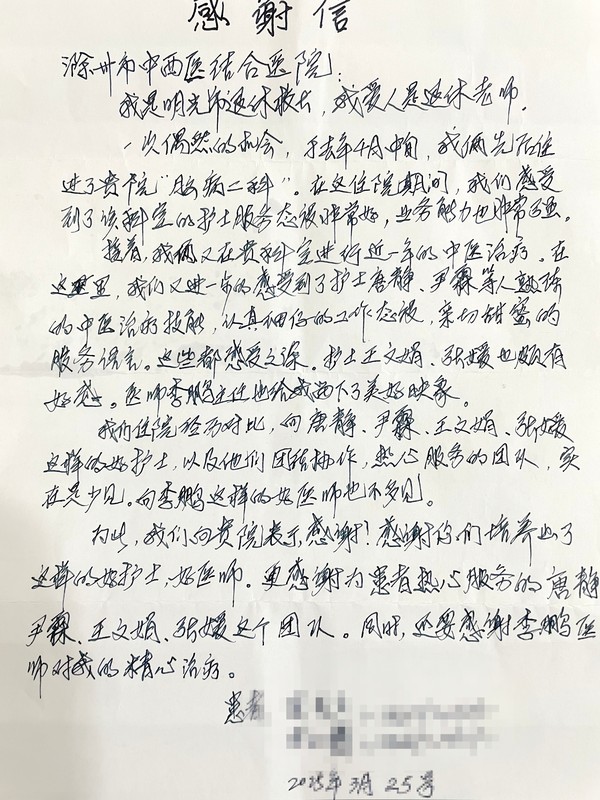 感谢信
滁州市中西医结合医院：
我是明光市退休教长，我爱人是退休老师．
一次偶然的机会，于去年4月中旬，我俩先后住
进了贵院“脑病二科”。在这住院期间，我们感受
到了该科室的护士服务态度非常好，业务能力也非常了强。
接着，我俩又在贵科室进行近一年的中医治疗。在
这里里，我们又进一步的感受到了护士唐静、尹霖等人熟练
的中医治疗技能，认真细仔的工作态度，亲切甜蜜的
服务语言。这些都感受之深。护士王文娟、张媛也颇有
好感。医师李鹏主任也给我留下了美好映象。
我们住院经历对比，向唐静、尹霖、王文娟、张媛
这样的好护士，以及他们团结协作，热心服务的团队，实
在是少见。向李鹏这样的好医师也不多见。
为此，我们向贵院表示感谢！感谢你们培养出了
这样的好护士，好医师。更感谢为患者热心服务的唐静
尹霖、王文娟、张媛这个团队。同时，还要感谢李鹏医
师对我的精心治疗。
患者
2025年3月25号